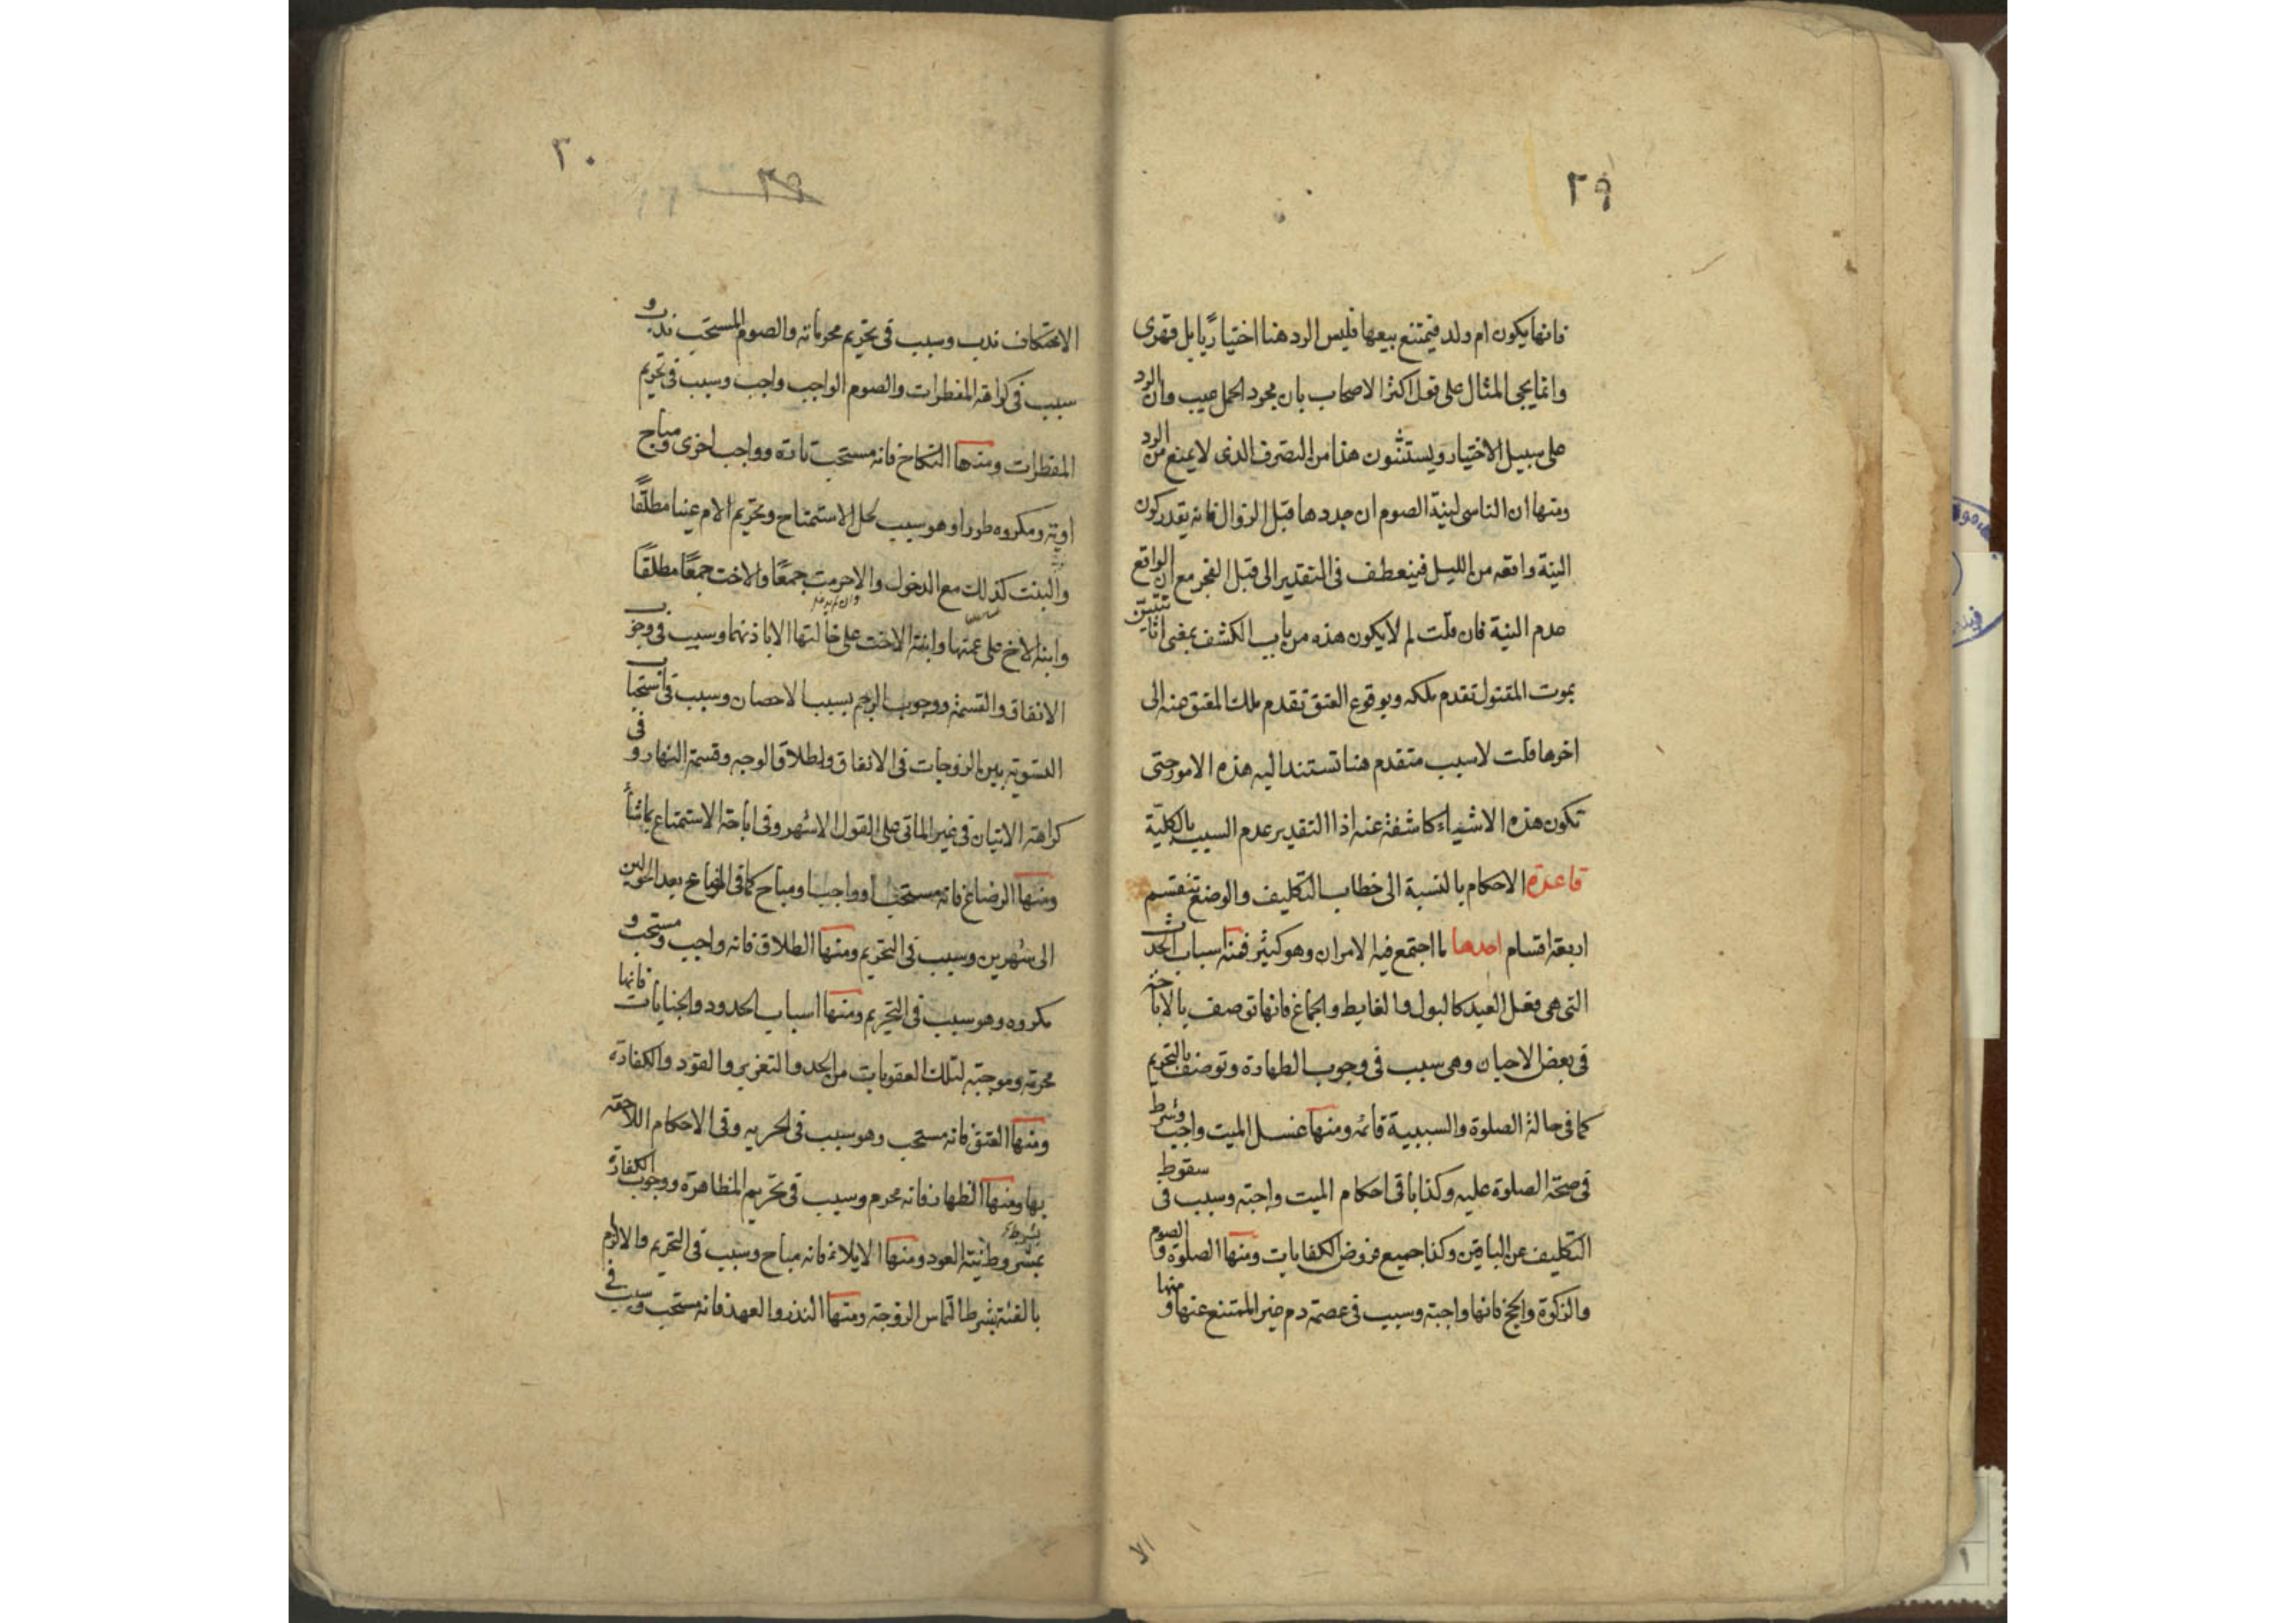 ٢٩
فانها يكون ام ولد فيمتنع بيعها فليس الرد هنا اختياريًا بل قهرى
وانما يجى المثال على قول اكثر الاصحاب بان مجرد الحمل عيب وان الرد
على سبيل الاختيار ويستثنون هذا من التصرف الذى لا يمنع من الرد
ومنها ان الناسى لنية الصوم ان جددها قبل الزوال فانه يقدر كون
النية واقعه من الليل فينعطف فى التقدير الى قبل الفجر مع ان الواقع
عدم النية فان قلت لم لا يكون هذه من باب الكشف بمعنى انا نتبين
بموت المقتول تقدم ملكه وبوقوع العتق تقدم ملك المعتق عنه الى
اخرها قلت لا سبب متقدم هنا تستند اليه هذه الامور حتى
تكون هذه الاشياء كاشفة عنه اذا التقدير عدم السبب بالكلية
قاعدة الاحكام بالنسبة الى خطاب التكليف والوضع تنقسم
اربعة اقسام احدها ما اجتمع فيه الامران وهو كثير فمنه اسباب الحدث
التى هى فعل العبد كالبول والغايط والجماع فانها توصف بالاباحة
فى بعض الاحيان وهى سبب فى وجوب الطهارة وتوصف بالتحريم
كما فى حالة الصلوة والسببية قائمه ومنها غسل الميت واجب وشرط
فى صحة الصلوة عليه وكذا باقى احكام الميت واجبة وسبب فى سقوط
التكليف عن الباقين وكذا جميع فروض الكفايات ومنها الصلوة والصوم
والزكوة والحج فانها واجبة وسبب فى عصمة دم غير الممتنع عنها ومنها
الا
٣٠
٢٩
الاعتكاف ندب وسبب فى تحريم محرماته والصوم المستحب ندب و
سبب فى كراهة المفطرات والصوم الواجب واجب وسبب فى تحريم
المفطرات ومنها النكاح فانه مستحب تارة وواجب اخرى ومباح
اونة ومكروه طورا وهو سبب لحل الاستمتاع وتحريم الام عينا مطلقًا
والبنت كذلك مع الدخول والا حرمت جمعًا والاخت جمعًا مطلقًا
وابنة الاخ على عمتها وابنة الاخت على خالتها الا باذنهما وسبب فى وجوب
الانفاق والقسمة ووجوب الرجم بسبب الاحصان وسبب فى استحباب
التسوية بين الزوجات فى الانفاق واطلاق الوجه وقسمة النهار وفى
كراهة الاتيان فى غير الماتى على القول الاشهر وفى اباحة الاستمتاع بما شاء
ومنها الرضاع فانه مستحب او واجب او مباح كما فى الرضاع بعد الحولين
الى شهرين وسبب فى التحريم ومنها الطلاق فانه واجب ومستحب و
مكروه وهو سبب فى التحريم ومنها اسباب الحدود والجنايات فانها
محرمة وموجبة لتلك العقوبات من الحد والتعزير والقود والكفارة
ومنها العتق فانه مستحب وهو سبب فى الحرية وفى الاحكام اللاحقه
بها ومنها الظهار فانه محرم وسبب فى تحريم المظاهرة ووجوب الكفارة
بشرط نية العود ومنها الايلاء فانه مباح وسبب فى التحريم والالزام
بالفئة بشرط التماس الزوجة ومنها النذر والعهد فانه مستحب وسبب فى